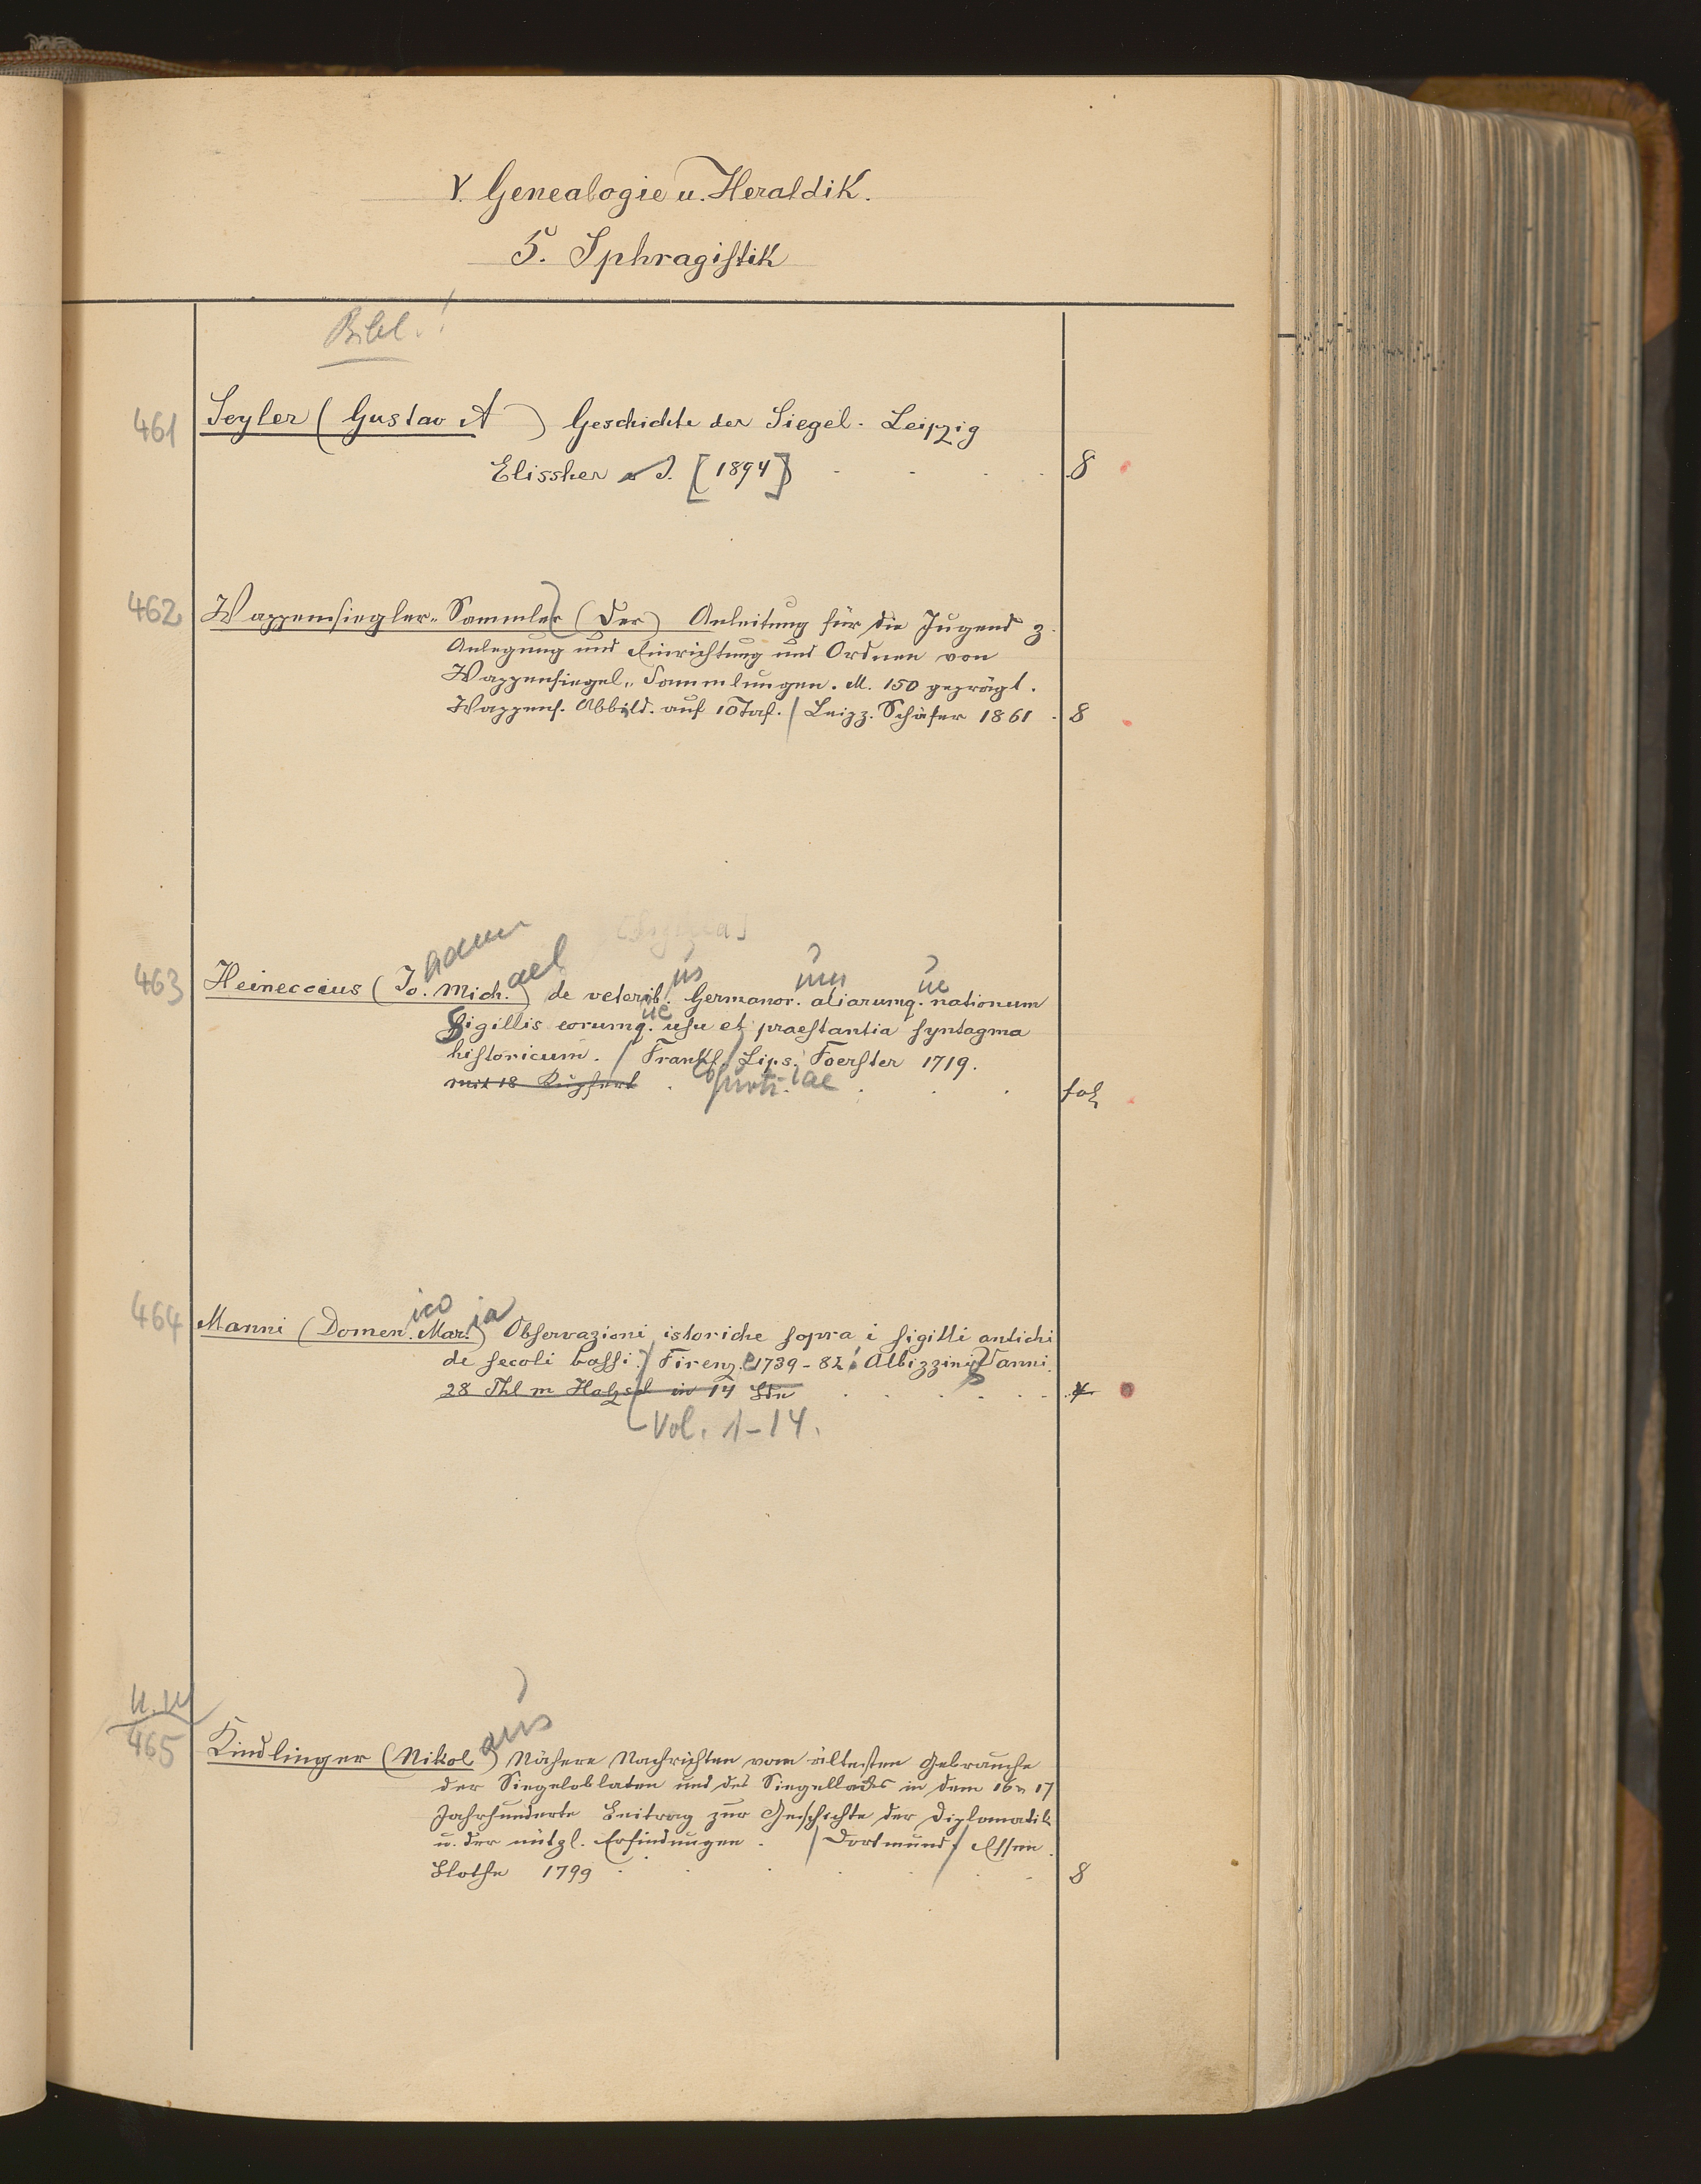 V. Genealogie u. Heraldik.
5. Sphragistik
Bibl.!
461
Seyler (Gustav A ) Geschichte der Siegel. Leipzig
Elissher o J. [1894] 8
462
Wappensiegler-Sammler (Der) Anleitung für die Jugend z.
Anlegung und Einrichtung und Ordnen von
Wappensiegel-Sammlungen. M. 150 geprägt.
Wappens. Abbild. auf 10 Taf. / Leipz. Schäfer 1861 8
463
Heineccius (Jo. Mich.ael) de veterib.us Germanor.um aliarumq.ue nationum
Sigillis eorumq.ue usu et praestantia syntagma
historicum. / Frankf. / Lips. Foerster 1719.
furti iae
mit 18 Kupfert fol
464
Manni (Domen.ico Mar.ia) Observazioni istoriche sopra i sigilli antichi
de secoli bassi. / Firenz.e 1739-82. Albizzini, Vanni.
28 Thl m Holzsch in 14 Bdn 4
Vol. 1-14.
465
Kindlinger (Nikolaus) Nähere Nachrichten vom ältesten Gebrauche
der Siegeloblaten und des Siegellacks in dem 16 u 17
Jahrhunderte Beitrag zur Geschichte der Diplomatik
u. der nützl. Erfindungen. / Dortmund / Essen.
Blothe 1799 8